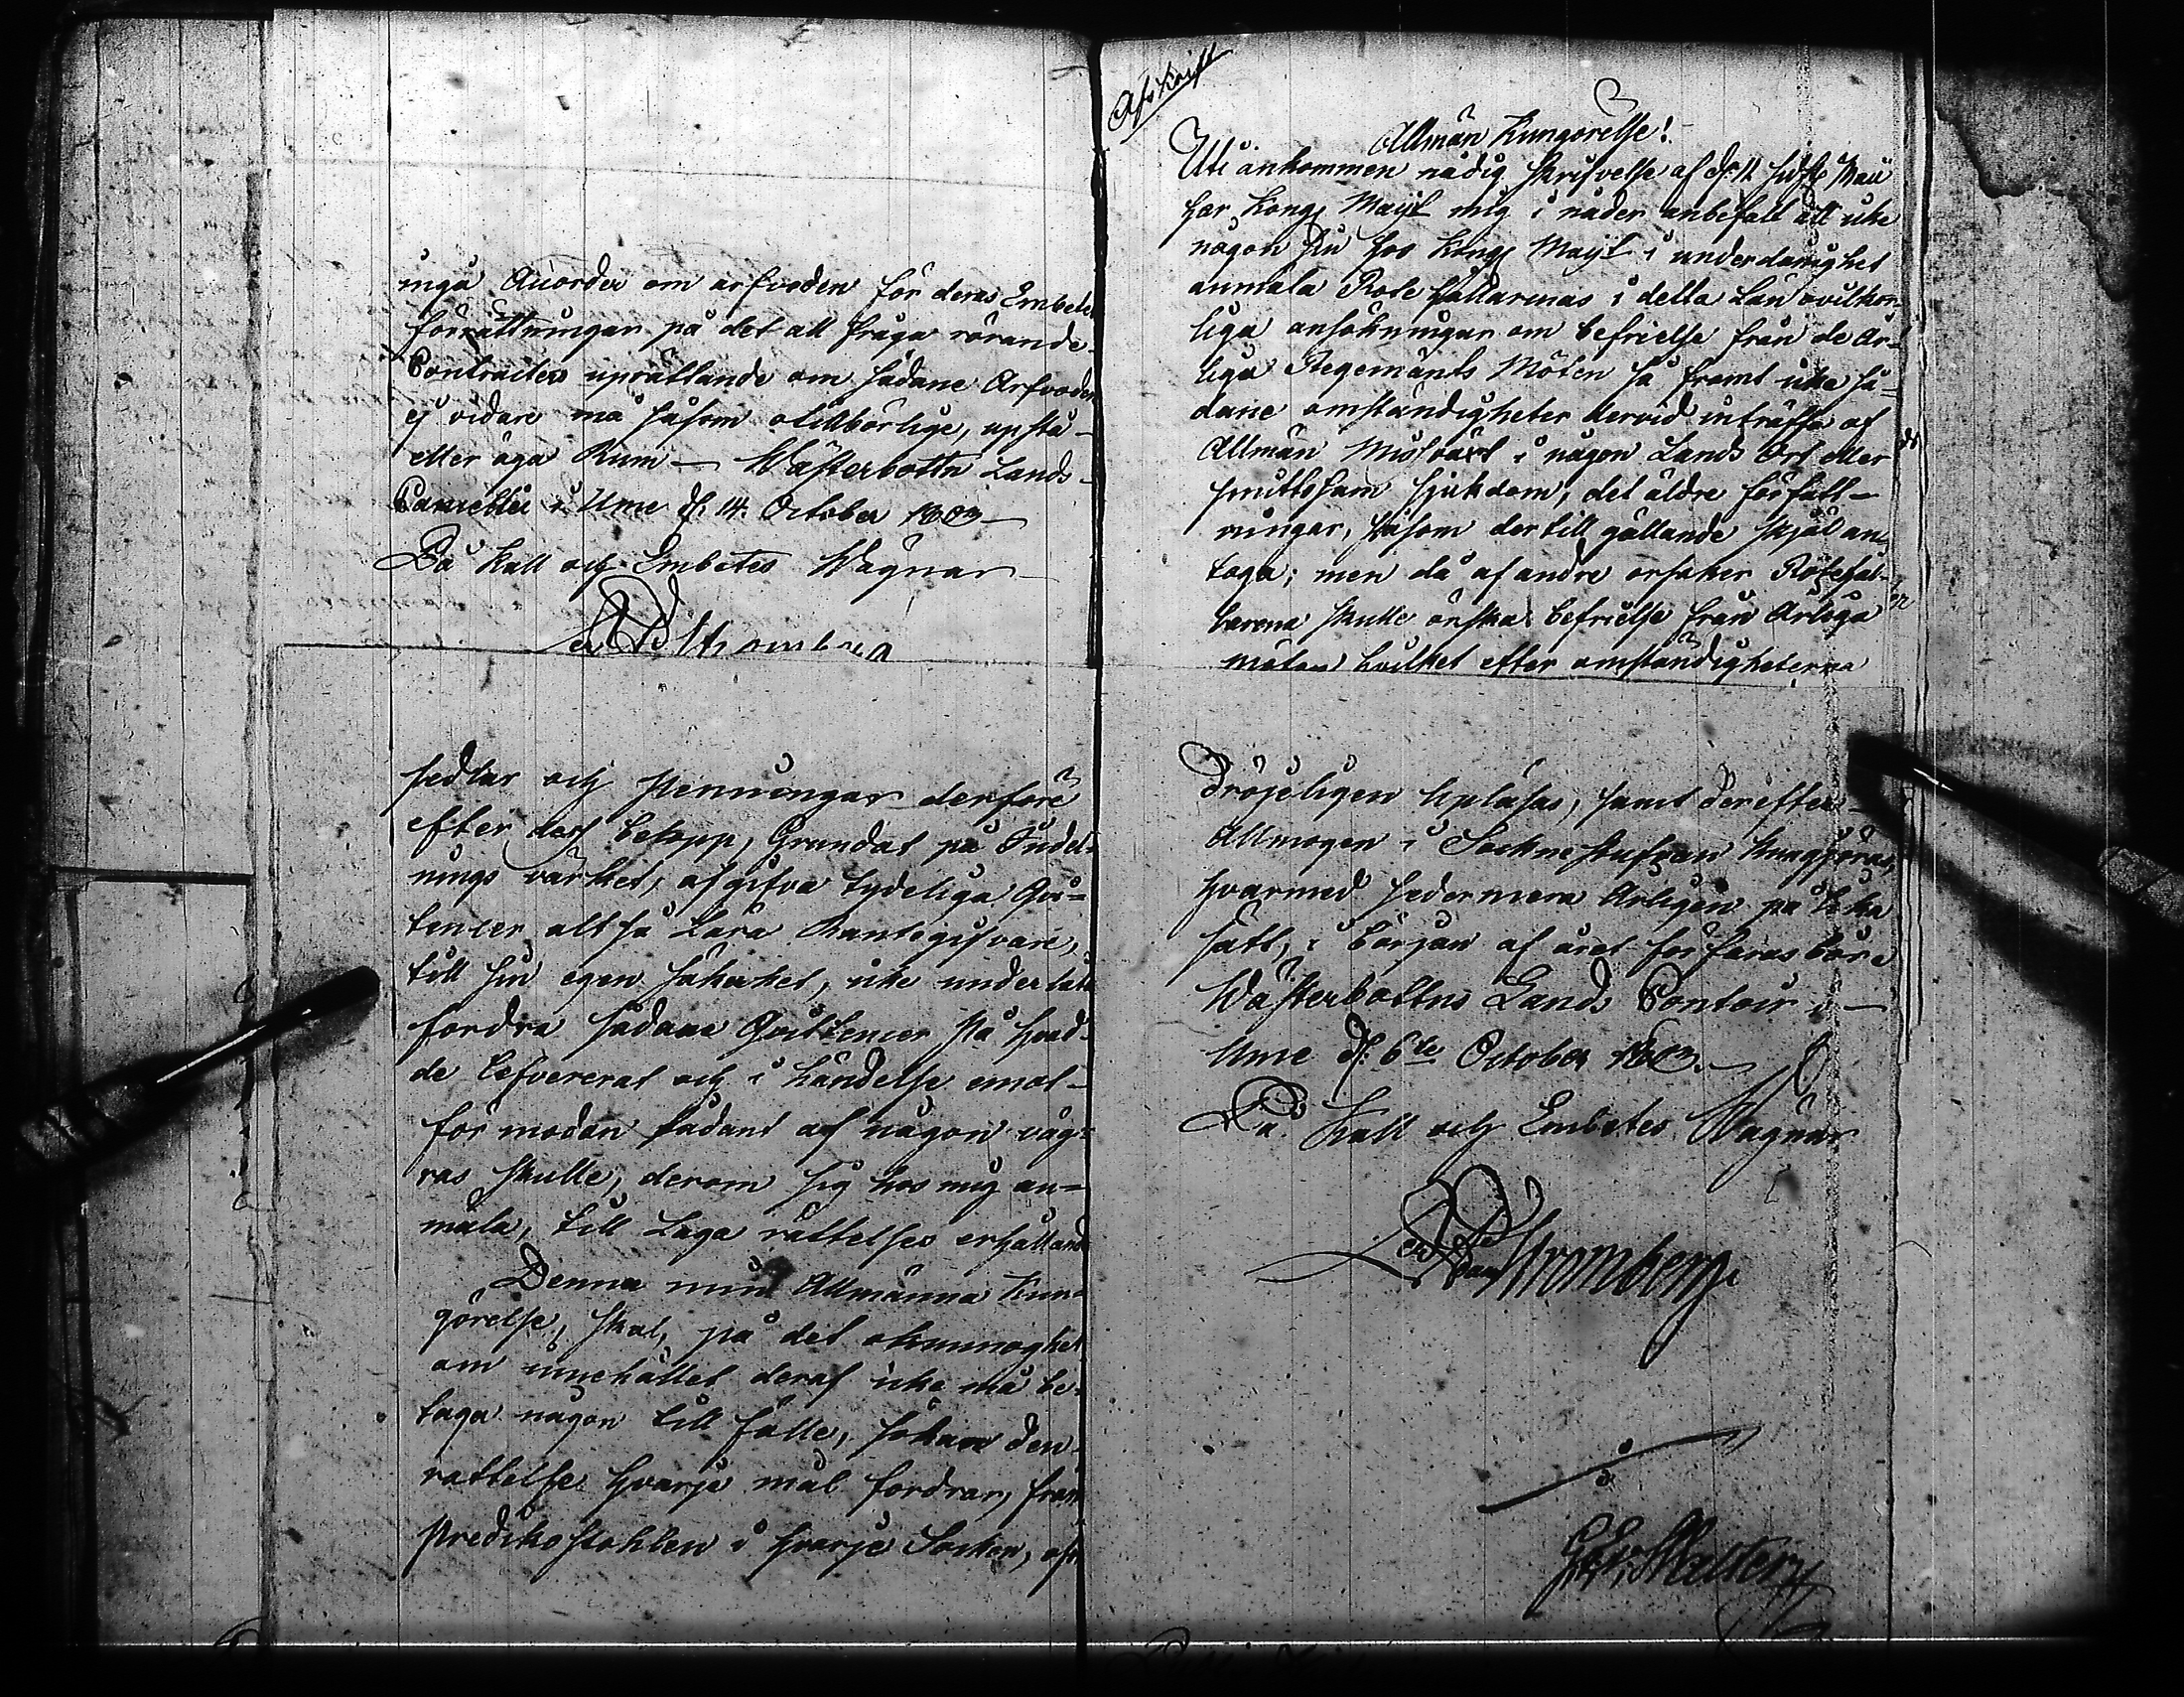 inga Accorder om arfvoden för deras Embets
förrättningar på det all fråga rörande
Contracters uprättande om sådane Arfvoden
ej vidare må såsom otillbörlige, upstå
eller äga Rum — Wästerbottn Lands-
Cancellie i Ume d. 14. October 1803 —
På Kall och Embetes Wägnar
Stromberg
sedlar och stemningar derföre
efter dess belopp, Grundat på Indel-
nings värket, afgifva tydeliga Qvi-
tencer altså Lära Rantegifvare,
till sin egen säkerhet, icke underlåta
fordra sådane Qvittencer på hvad
de lefvererat och i händelse emot-
förmodan sådant af någon väg-
ras skulle, derom sig hos mig an-
mäla, till Laga rättelses erhålland
Denna min Allmänna Kun-
görelse, skal, på det okunnoghet
om innehållet deraf icke må be-
taga någon till fälle, söka den
rättelse hvarje mål fordrar, från
Predikostohlen i hvarje Socken,
Afskrift
Allmän Kungörelse!
Uti ankommen nådig skrifvelse af d. 11 sidstl. Maii
har Kongl Majt mig i nåder anbefalt att icke
någon sin hos Kongl Majt i underdånighet
anmäla Rote hållarnas i detta Län ovilkor-
liga ansökningar om befrielse från de År-
liga Regemänts Möten så framt icke så-
dane omständigheter dervid inträffa af
Allmän Missväxt i någon Lands Ort eller
smittosam sjukdom, det äldre författ-
ningar, såsom der till gällande skjäl an-
taga; men då af andre orsaker Rotehål-
larena skulle önska befrielse från Årliga
möten hvilket efter omständigheterna
dröjeligen upläsas, samt derefter
Allmogen i Sockne stufvan kungjöras,
hvarmed sedermera Årligen på lika
sätt, i början af året förfaras bör.
Wästerbottns Lands Contoir i —
Ume d. 6te October 1803. —
På Kall och Embetes Wägnar
Stromberg